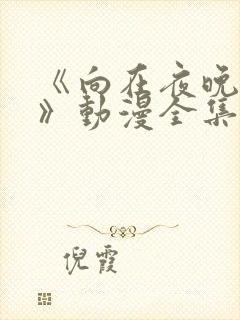 《向在夜晚
》動漫全集
倪霞